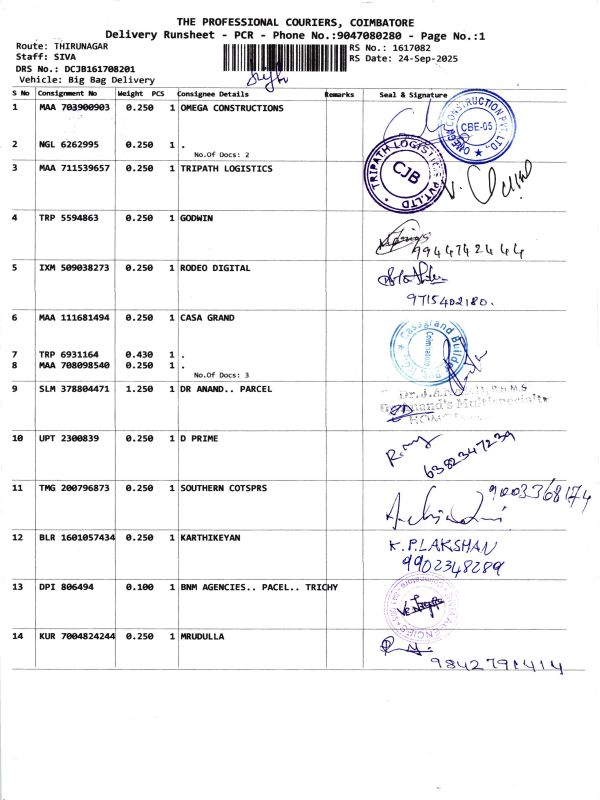 THE PROFESSIONAL COURIERS, COIMBATORE
Delivery Runsheet - PCR - Phone No.:9047080280 - Page No.:1
Route: THIRUNAGAR
RS No.: 1617082
Staff: SIVA
RS Date: 24-Sep-2025
DRS No.: DCJB161708201
Vehicle: Big Bag Delivery
S No Consignment No Weight PCS Consignee Details Remarks Seal & Signature
1 MAA 703900903 0.250 1 OMEGA CONSTRUCTIONS
OMEGA CONSTRUCTION PVT. LTD.,
CBE-05
2 NGL 6262995 0.250 1 .
No.Of Docs: 2
3 MAA 711539657 0.250 1 TRIPATH LOGISTICS
TRIPATH LOGISTICS PVT.LTD
CJB
4 TRP 5594863 0.250 1 GODWIN
9944742444
5 IXM 509038273 0.250 1 RODEO DIGITAL
9715402180.
6 MAA 111681494 0.250 1 CASA GRAND
Casagrand Builder
Coimbatore
7 TRP 6931164 0.430 1 .
8 MAA 708098540 0.250 1 .
No.Of Docs: 3
9 SLM 378804471 1.250 1 DR ANAND.. PARCEL
Multispeciality
10 UPT 2300839 0.250 1 D PRIME
6382347239
11 TMG 200796873 0.250 1 SOUTHERN COTSPRS
9003368174
12 BLR 1601057434 0.250 1 KARTHIKEYAN
K.P.LAKSHAN
9902348289
13 DPI 806494 0.100 1 BNM AGENCIES.. PACEL.. TRICHY
AGENCIES
14 KUR 7004824244 0.250 1 MRUDULLA
9842791414